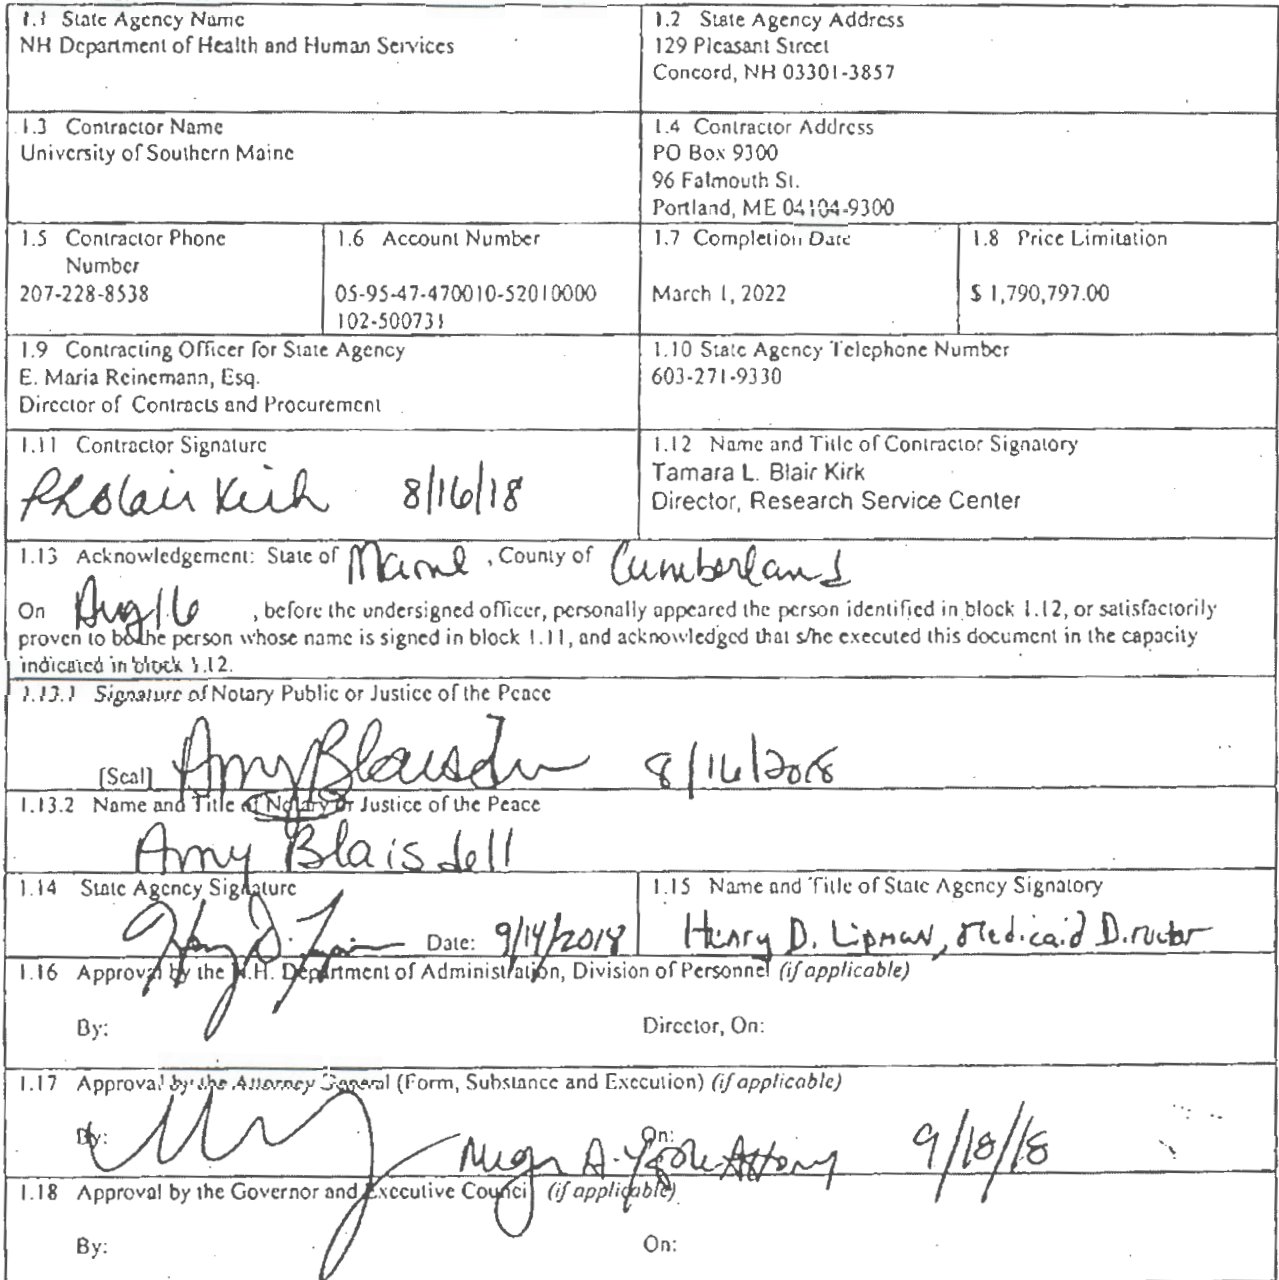 1.1 State Agency Name
NH Department of Health and Human Services
1.2 State Agency Address
129 Pleasant Street
Concord, NH 03301-3857
1.3 Contractor Name
University of Southern Maine
1.4 Contractor Address
PO Box 9300
96 Falmouth St.
Portland, ME 04104-9300
1.5 Contractor Phone
Number
207-228-8538
1.6 Account Number
05-95-47-470010-52010000
102-500731
1.7 Completion Date
March 1, 2022
1.8 Price Limitation
$ 1,790,797.00
1.9 Contracting Officer for State Agency
E. Maria Reinemann, Esq.
Director of Contracts and Procurement
1.10 State Agency Telephone Number
603-271-9330
1.11 Contractor Signature
Blair Kirk 8/16/18
1.12 Name and Title of Contractor Signatory
Tamara L. Blair Kirk
Director, Research Service Center
1.13 Acknowledgement: State of Maine, County of Cumberland
On Aug 16, before the undersigned officer, personally appeared the person identified in block 1.12, or satisfactorily
proven to be the person whose name is signed in block 1.11, and acknowledged that s/he executed this document in the capacity
indicated in block 1.12.
1.13.1 Signature of Notary Public or Justice of the Peace
[Seal] Amy Blaisdell 8/16/2018
1.13.2 Name and Title of Notary or Justice of the Peace
Amy Blaisdell
1.14 State Agency Signature
Date: 9/14/2018
1.15 Name and Title of State Agency Signatory
Henry D. Lipman, Medicaid Director
1.16 Approval by the N.H. Department of Administration, Division of Personnel (if applicable)
By: Director, On:
1.17 Approval by the Attorney General (Form, Substance and Execution) (if applicable)
By: On:
Megan A. Attorney 9/18/18
1.18 Approval by the Governor and Executive Council (if applicable)
By: On: